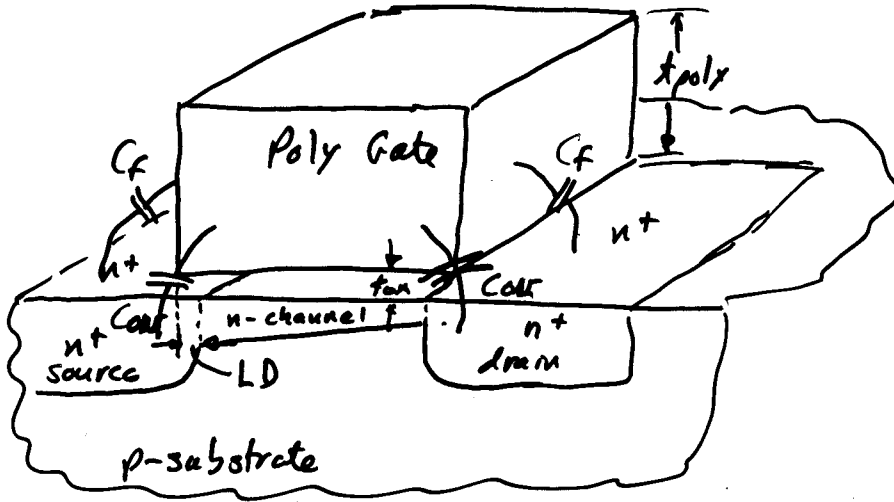 tpoly
Poly Gate
Cf
Cf
n+
n+
tox
Cov
Cov
n-channel
n+
source
n+
drain
LD
p-substrate